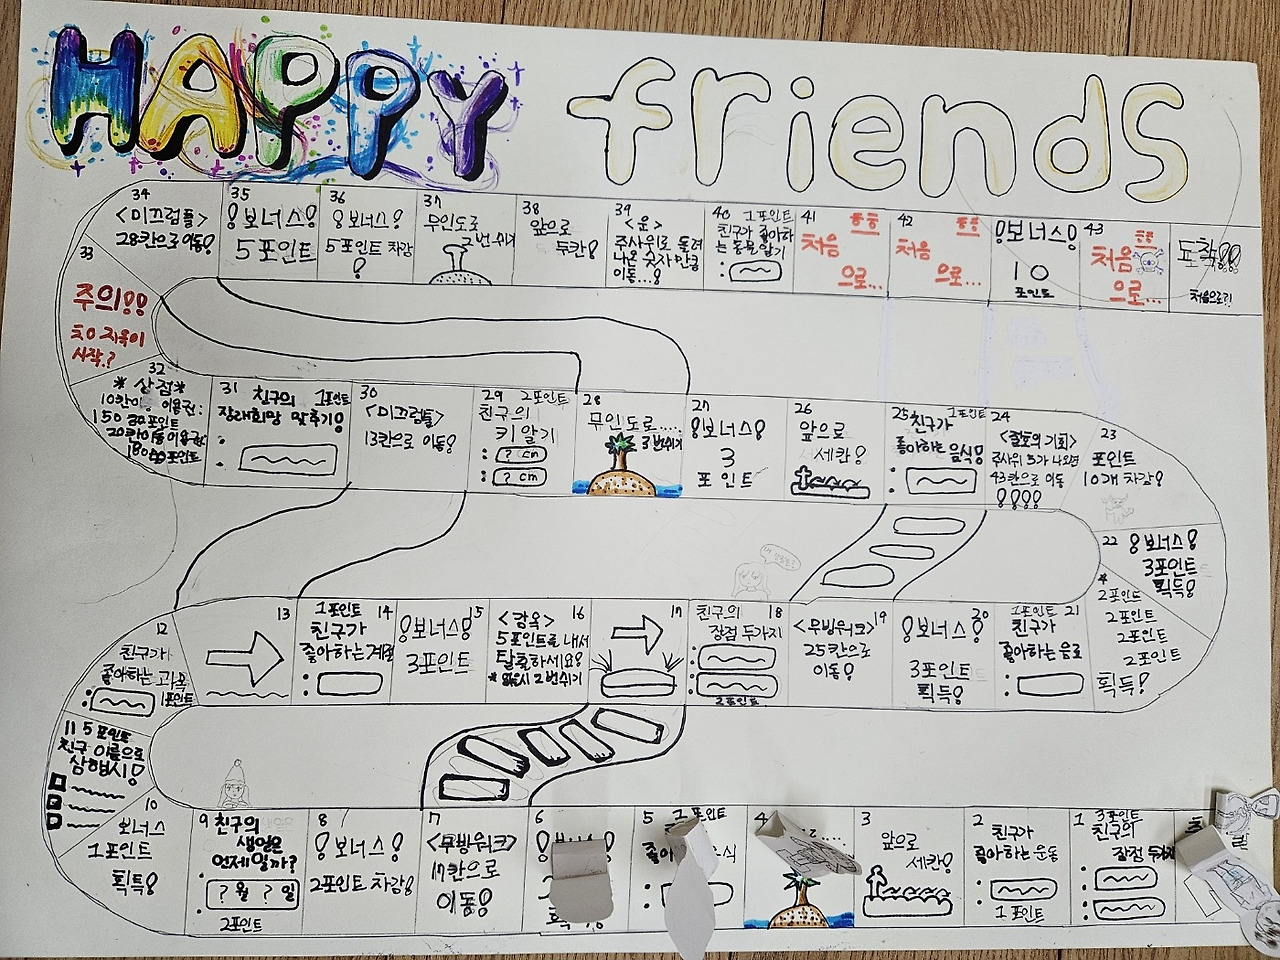 HAPPY friends
34
<미끄럼틀>
28칸으로 이동!
35
!보너스!
5포인트
36
!보너스!
5포인트 차감
!
37
무인도로
2번 쉬기
38
앞으로
두칸!
39
<운>
주사위로 돌려
나온 숫자 만큼
이동...!
40 1포인트
친구가 좋아하
는 동물 알기
:
41
처음
으로...
42
처음
으로...
!보너스!
10
포인트
43
처음
으로...
도착!!
처음으로?!
33
주의!!
지옥이
시작.?
32
*상점*
31 친구의 1포인트
장래희망 맞추기!
:
30
<미끄럼틀>
13칸으로 이동!
29 2포인트
친구의
키 알기
: ? cm
: ? cm
28
무인도로....
3번쉬기
27
!보너스!
3
포인트
26
앞으로
세칸!
25 친구가 1포인트
좋아하는 음식!
:
24
주사위 5가 나오면
43칸으로 이동
!!!!
23
포인트
10개 차감!
22 !보너스!
3포인트
획득!
2포인트
2포인트
2포인트
2포인트
획득!
12
친구가
좋아하는 과목
: 1포인트
13
1포인트 14
친구가
좋아하는 계절
:
15
!보너스!
3포인트
<감옥> 16
5포인트를 내서
탈출하세요!
2번쉬기
17
친구의 18
장점 두가지
:
:
2포인트
19
<무빙워크>
25칸으로
이동!
20
!보너스!
3포인트
획득!
1포인트 21
친구가
좋아하는 음료
:
11 5포인트
친구 이름으로
삼행시!
10
보너스
1포인트
획득!
9 친구의
생일은
언제일까?
: ?월 ?일
2포인트
8
!보너스!
2포인트 차감!
7
<무빙워크>
17칸으로
이동!
6
5
4
3
앞으로
세칸!
2
친구가
좋아하는 운동
:
1포인트
1 3포인트
친구의
장점 두가지
:
: